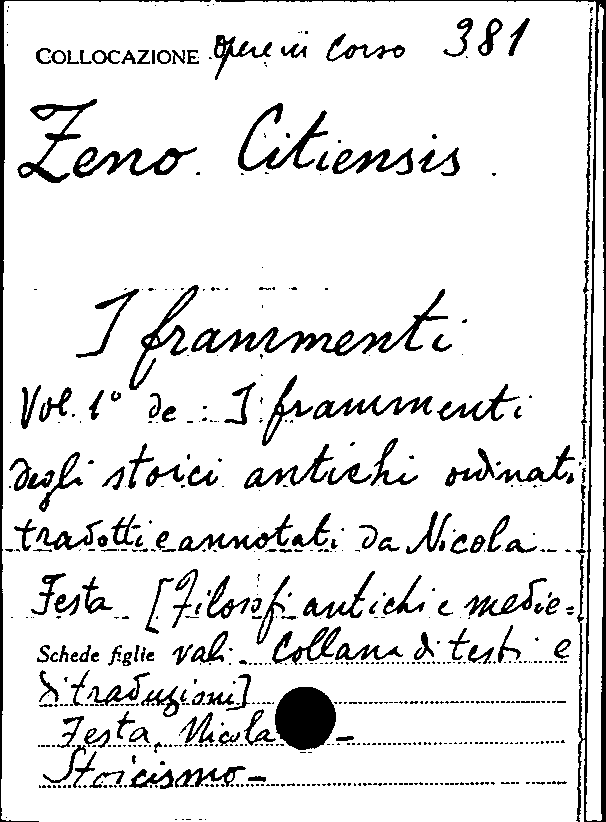 COLLOCAZIONE Opere in Corso 381
Zeno Citiensis.
I frammenti
Vol. 1° de: I frammenti
degli stoici antichi ordinati
tradotti e annotati da Nicola
Festa [Filosofi antichi e medie=
Schede figlie vali. Collana di testi e
di traduzioni]
Festa, Nicola -
Stoicismo -